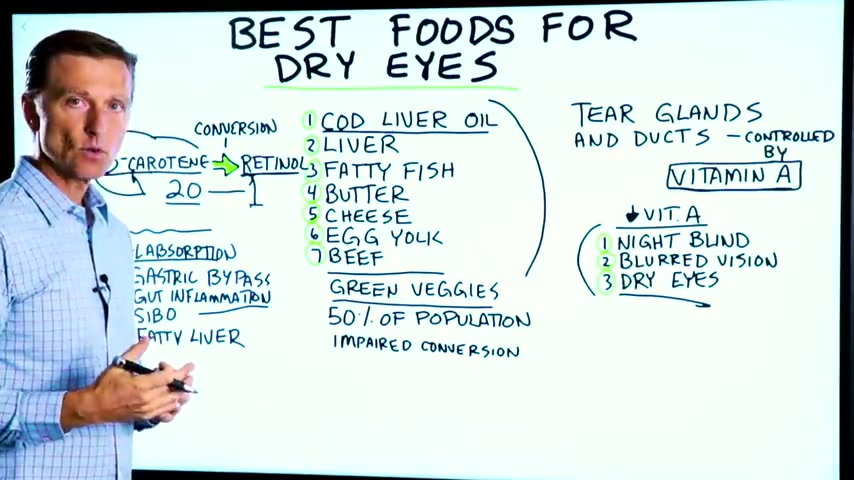 BEST FOODS FOR
DRY EYES
CONVERSION
-CAROTENE RETINOL
20 — 1
LABSORPTION
GASTRIC BYPASS
GUT INFLAMMATION
SIBO
FATTY LIVER
1 COD LIVER OIL
2 LIVER
3 FATTY FISH
4 BUTTER
5 CHEESE
6 EGG YOLK
7 BEEF
GREEN VEGGIES
50% OF POPULATION
IMPAIRED CONVERSION
TEAR GLANDS
AND DUCTS - CONTROLLED
BY
VITAMIN A
↓ VIT. A
1 NIGHT BLIND
2 BLURRED VISION
3 DRY EYES